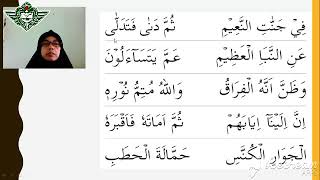 فِيْ جَنّٰتِ النَّعِيْمِ ثُمَّ دَنٰى فَتَدَلّٰى
عَنِ النَّبَاِ الْعَظِيْمِ عَمَّ يَتَسَآءَلُوْنَ
وَظَنَّ اَنَّهُ الْفِرَاقُ وَاللّٰهُ مُتِمُّ نُوْرِهٖ
اِنَّ اِلَيْنَآ اِيَابَهُمْ ثُمَّ اَمَاتَهٗ فَاَقْبَرَهٗ
الْجَوَارِ الْكُنَّسِ حَمَّالَةَ الْحَطَبِ